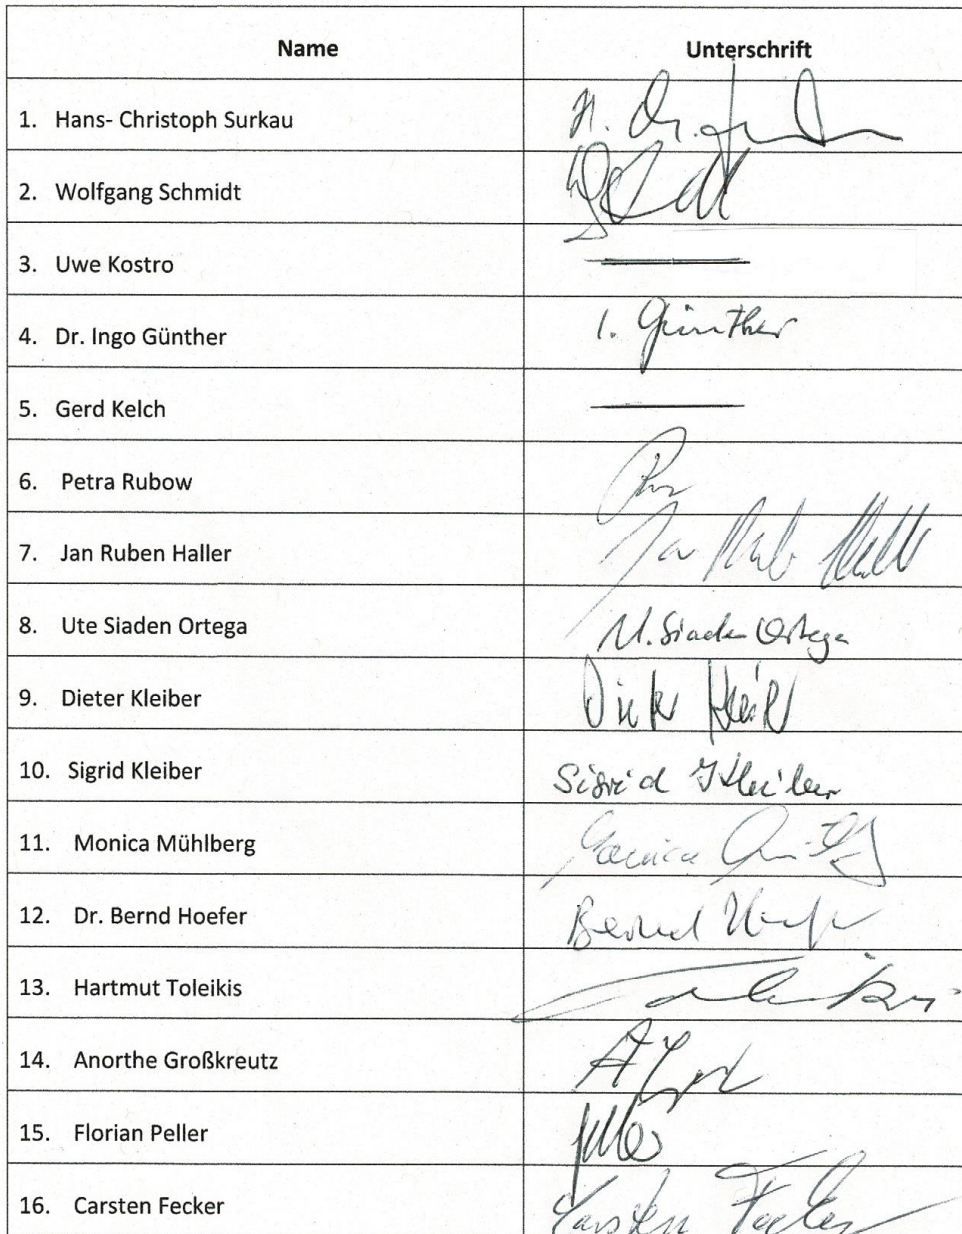 Name Unterschrift
1. Hans- Christoph Surkau
2. Wolfgang Schmidt
3. Uwe Kostro
4. Dr. Ingo Günther I. Günther
5. Gerd Kelch
6. Petra Rubow
7. Jan Ruben Haller
8. Ute Siaden Ortega U. Siaden Ortega
9. Dieter Kleiber
10. Sigrid Kleiber Sigrid Kleiber
11. Monica Mühlberg Monica
12. Dr. Bernd Hoefer Bernd
13. Hartmut Toleikis Toleikis
14. Anorthe Großkreutz
15. Florian Peller
16. Carsten Fecker Carsten Fecker